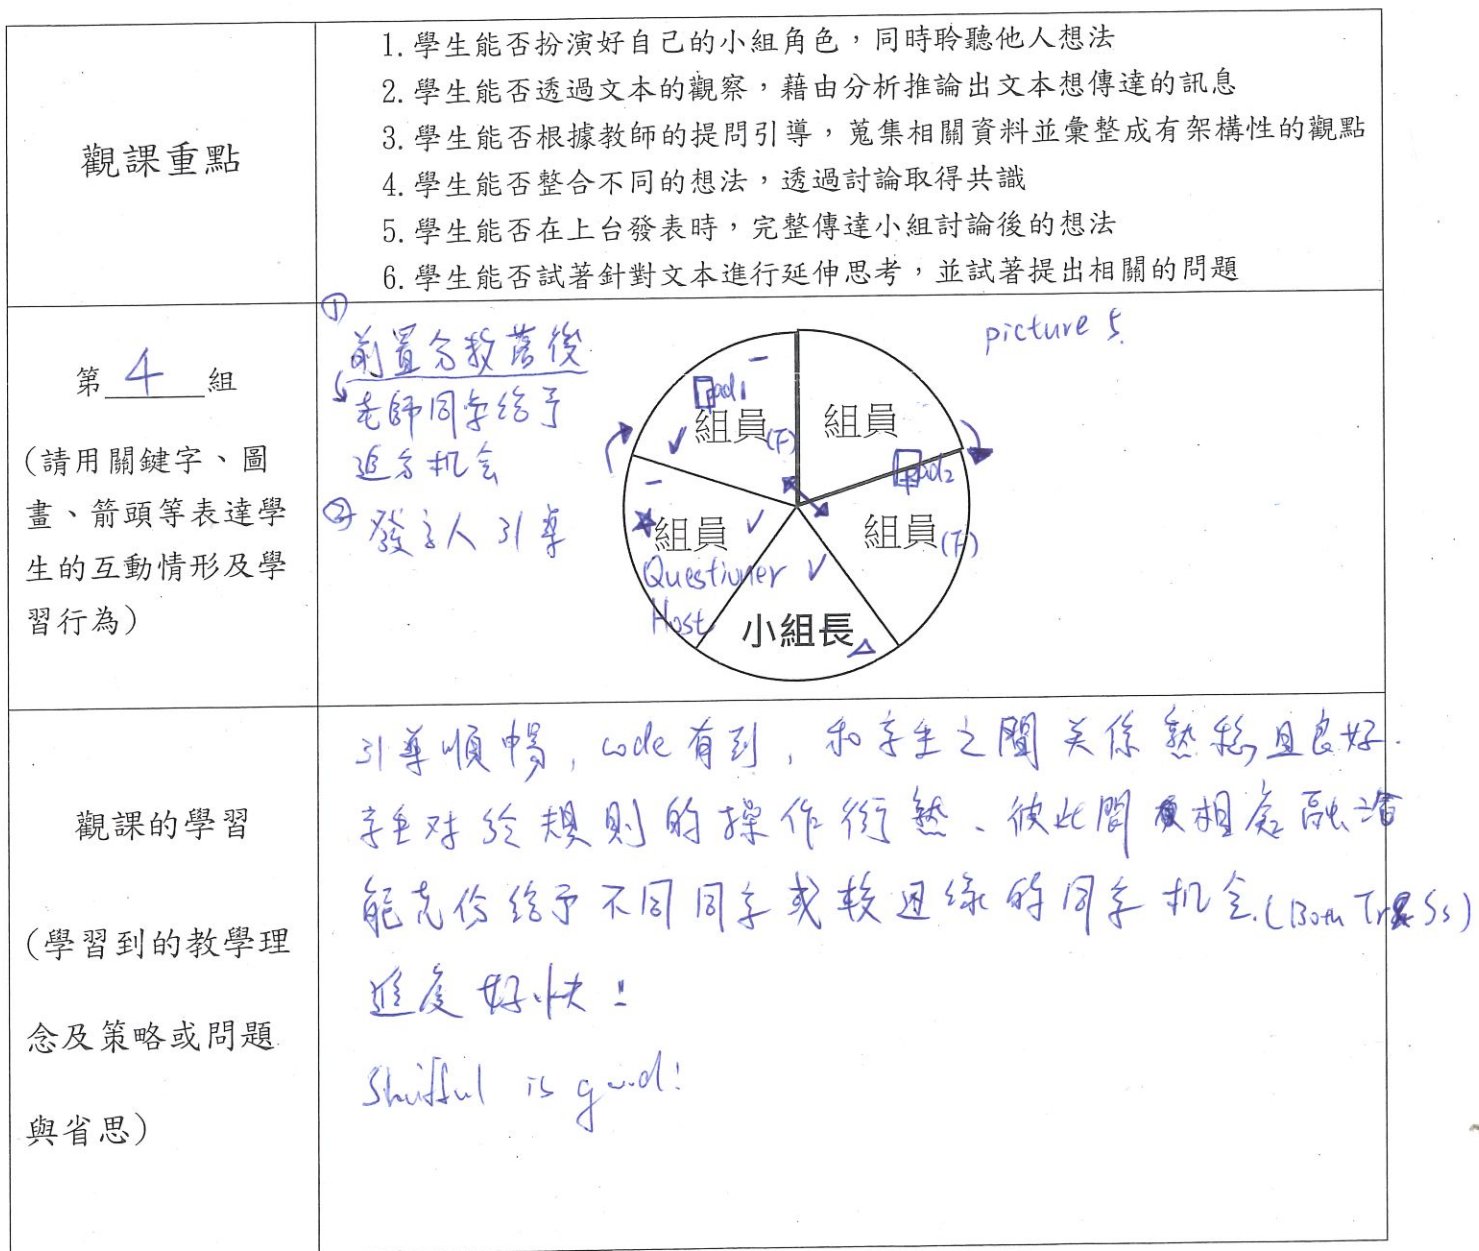 觀課重點
1.學生能否扮演好自己的小組角色，同時聆聽他人想法
2.學生能否透過文本的觀察，藉由分析推論出文本想傳達的訊息
3.學生能否根據教師的提問引導，蒐集相關資料並彙整成有架構性的觀點
4.學生能否整合不同的想法，透過討論取得共識
5.學生能否在上台發表時，完整傳達小組討論後的想法
6.學生能否試著針對文本進行延伸思考，並試著提出相關的問題
第 4 組
(請用關鍵字、圖
畫、箭頭等表達學
生的互動情形及學
習行為)
①
前置分數落後
老師同学给予
追分机会
② 發言人引導
picture 5
pad1
組員(F)
組員
pad2
組員
組員(F)
Questioner
Host
小組長
觀課的學習
(學習到的教學理
念及策略或問題
與省思)
引導順暢, code有到, 和学生之間关係熟稔且良好.
学生对於規則的操作很熟、彼此間相處融洽
能充份給予不同同学或較迟缓的同学机会.(Both Tr & Ss)
進度好快!
is good!